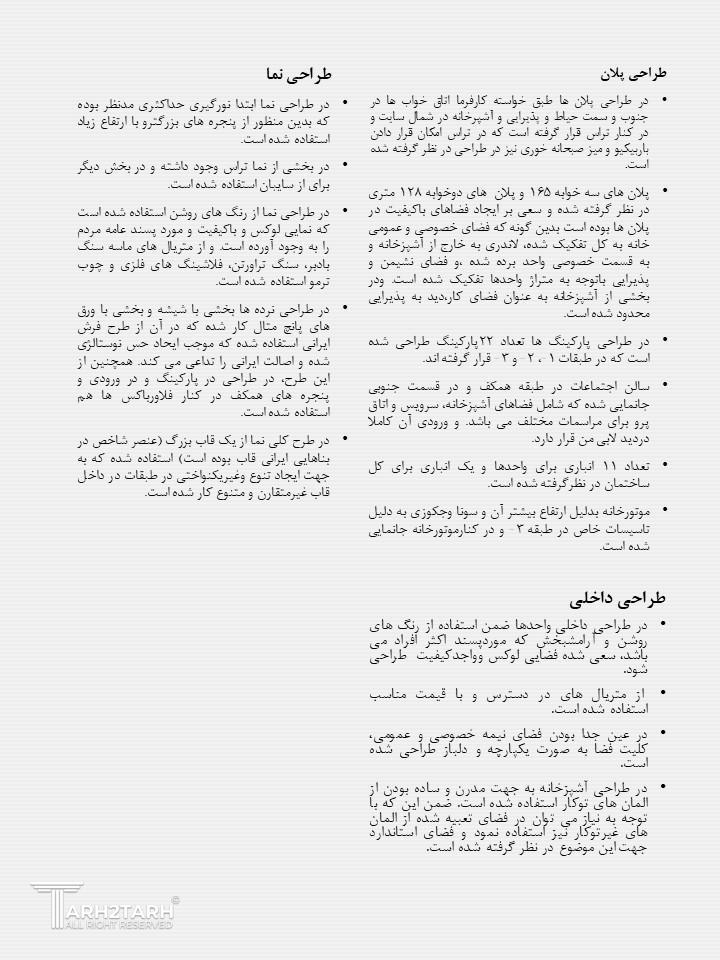 طراحی پلان
• در طراحی پلان ها طبق خواسته کارفرما اتاق خواب ها در
جنوب و سمت حیاط و پذیرایی و آشپرخانه در شمال سایت و
در کنار تراس قرار گرفته است که در تراس امکان قرار دادن
باربیکیو و میز صبحانه خوری نیز در طراحی در نظر گرفته شده
است.
• پلان های سه خوابه ۱۶۵ و پلان های دوخوابه ۱۲۸ متری
در نظر گرفته شده و سعی بر ایجاد فضاهای باکیفیت در
پلان ها بوده است بدین گونه که فضای خصوصی و عمومی
خانه به کل تفکیک شده، لاندری به خارج از آشپزخانه و
به قسمت خصوصی واحد برده شده ،و فضای نشیمن و
پذیرایی باتوجه به متراژ واحدها تفکیک شده است. ودر
بخشی از آشپزخانه به عنوان فضای کار،دید به پذیرایی
محدود شده است.
• در طراحی پارکینگ ها تعداد ۲۲پارکینگ طراحی شده
است که در طبقات ۱-، ۲- و ۳- قرار گرفته اند.
• سالن اجتماعات در طبقه همکف و در قسمت جنوبی
جانمایی شده که شامل فضاهای آشپزخانه، سرویس و اتاق
پرو برای مراسمات مختلف می باشد. و ورودی آن کاملا
دردید لابی من قرار دارد.
• تعداد ۱۱ انباری برای واحدها و یک انباری برای کل
ساختمان در نظرگرفته شده است.
• موتورخانه بدلیل ارتفاع بیشتر آن و سونا وجکوزی به دلیل
تاسیسات خاص در طبقه ۳- و در کنارموتورخانه جانمایی
شده است.
طراحی داخلی
• در طراحی داخلی واحدها ضمن استفاده از رنگ های
روشن و آرامشبخش که موردپسند اکثر افراد می
باشد، سعی شده فضایی لوکس وواجدکیفیت طراحی
شود.
• از متریال های در دسترس و با قیمت مناسب
استفاده شده است.
• در عین جدا بودن فضای نیمه خصوصی و عمومی،
کلیت فضا به صورت یکپارچه و دلباز طراحی شده
است.
• در طراحی آشپزخانه به جهت مدرن و ساده بودن از
المان های توکار استفاده شده است. ضمن این که با
توجه به نیاز می توان در فضای تعبیه شده از المان
های غیرتوکار نیز استفاده نمود و فضای استاندارد
جهت این موضوع در نظر گرفته شده است.
طراحی نما
• در طراحی نما ابتدا نورگیری حداکثری مدنظر بوده
که بدین منظور از پنجره های بزرگترو با ارتفاع زیاد
استفاده شده است.
• در بخشی از نما تراس وجود داشته و در بخش دیگر
برای از سایبان استفاده شده است.
• در طراحی نما از رنگ های روشن استفاده شده است
که نمایی لوکس و باکیفیت و مورد پسند عامه مردم
را به وجود آورده است. و از متریال های ماسه سنگ
بادبر، سنگ تراورتن، فلاشینگ های فلزی و چوب
ترمو استفاده شده است.
• در طراحی نرده ها بخشی با شیشه و بخشی با ورق
های پانچ متال کار شده که در آن از طرح فرش
ایرانی استفاده شده که موجب ایجاد حس نوستالژی
شده و اصالت ایرانی را تداعی می کند. همچنین از
این طرح، در طراحی در پارکینگ و در ورودی و
پنجره های همکف در کنار فلاورباکس ها هم
استفاده شده است.
• در طرح کلی نما از یک قاب بزرگ (عنصر شاخص در
بناهایی ایرانی قاب بوده است) استفاده شده که به
جهت ایجاد تنوع وغیریکنواختی در طبقات در داخل
قاب غیرمتقارن و متنوع کار شده است.
TARH2TARH©
ALL RIGHT RESERVED